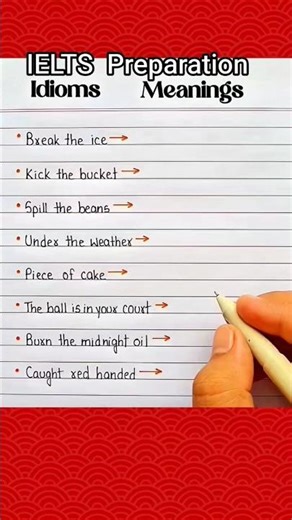 IELTS Preparation
Idioms Meanings
• Break the ice →
• Kick the bucket →
• Spill the beans →
• Under the weather →
• Piece of cake →
• The ball is in your court →
• Burn the midnight oil →
• Caught red handed →